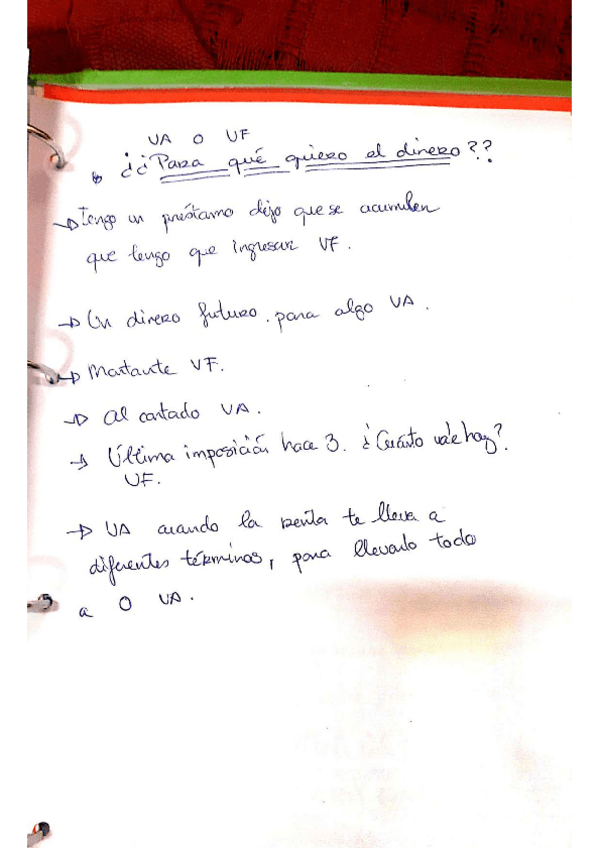 VA O VF
¿¿Para qué quiero el dinero??
→ Tengo un préstamo dijo que se acumulen
que tengo que ingresar VF.
→ Un dinero futuro. para algo VA.
→ Montante VF.
→ Al contado VA.
→ Última imposición hace 3. ¿Cuánto vale hoy?
VF.
→ VA cuando la renta te lleva a
diferentes términos, para llevarlo todo
a O VA.